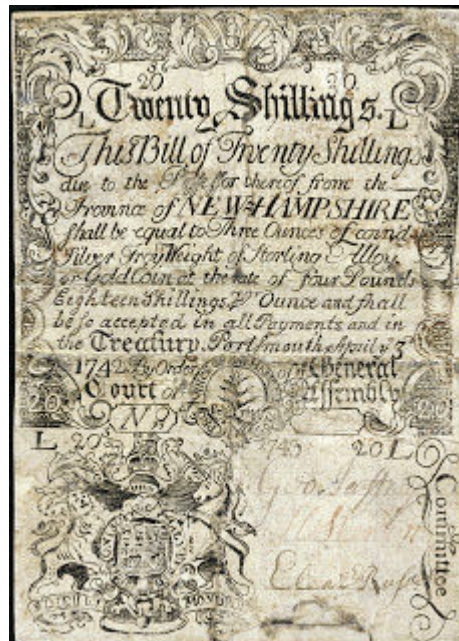 20 20
L Twenty Shillings. L
This Bill of Twenty Shillings
due to the Possessor thereof from the
Province of NEW-HAMPSHIRE
shall be equal to Three Ounces of coind
Silver Troy Weight of Sterling Alloy
or Gold Coin at the rate of four Pounds
Eighteen Shillings, P Ounce and shall
be so accepted in all Payments and in
the Treasury. Portsmouth April y 3d
1742 By Order of General
20 Court or Assembly 20
L 20 1743 20 L
Geo: Jaffrey
Committee